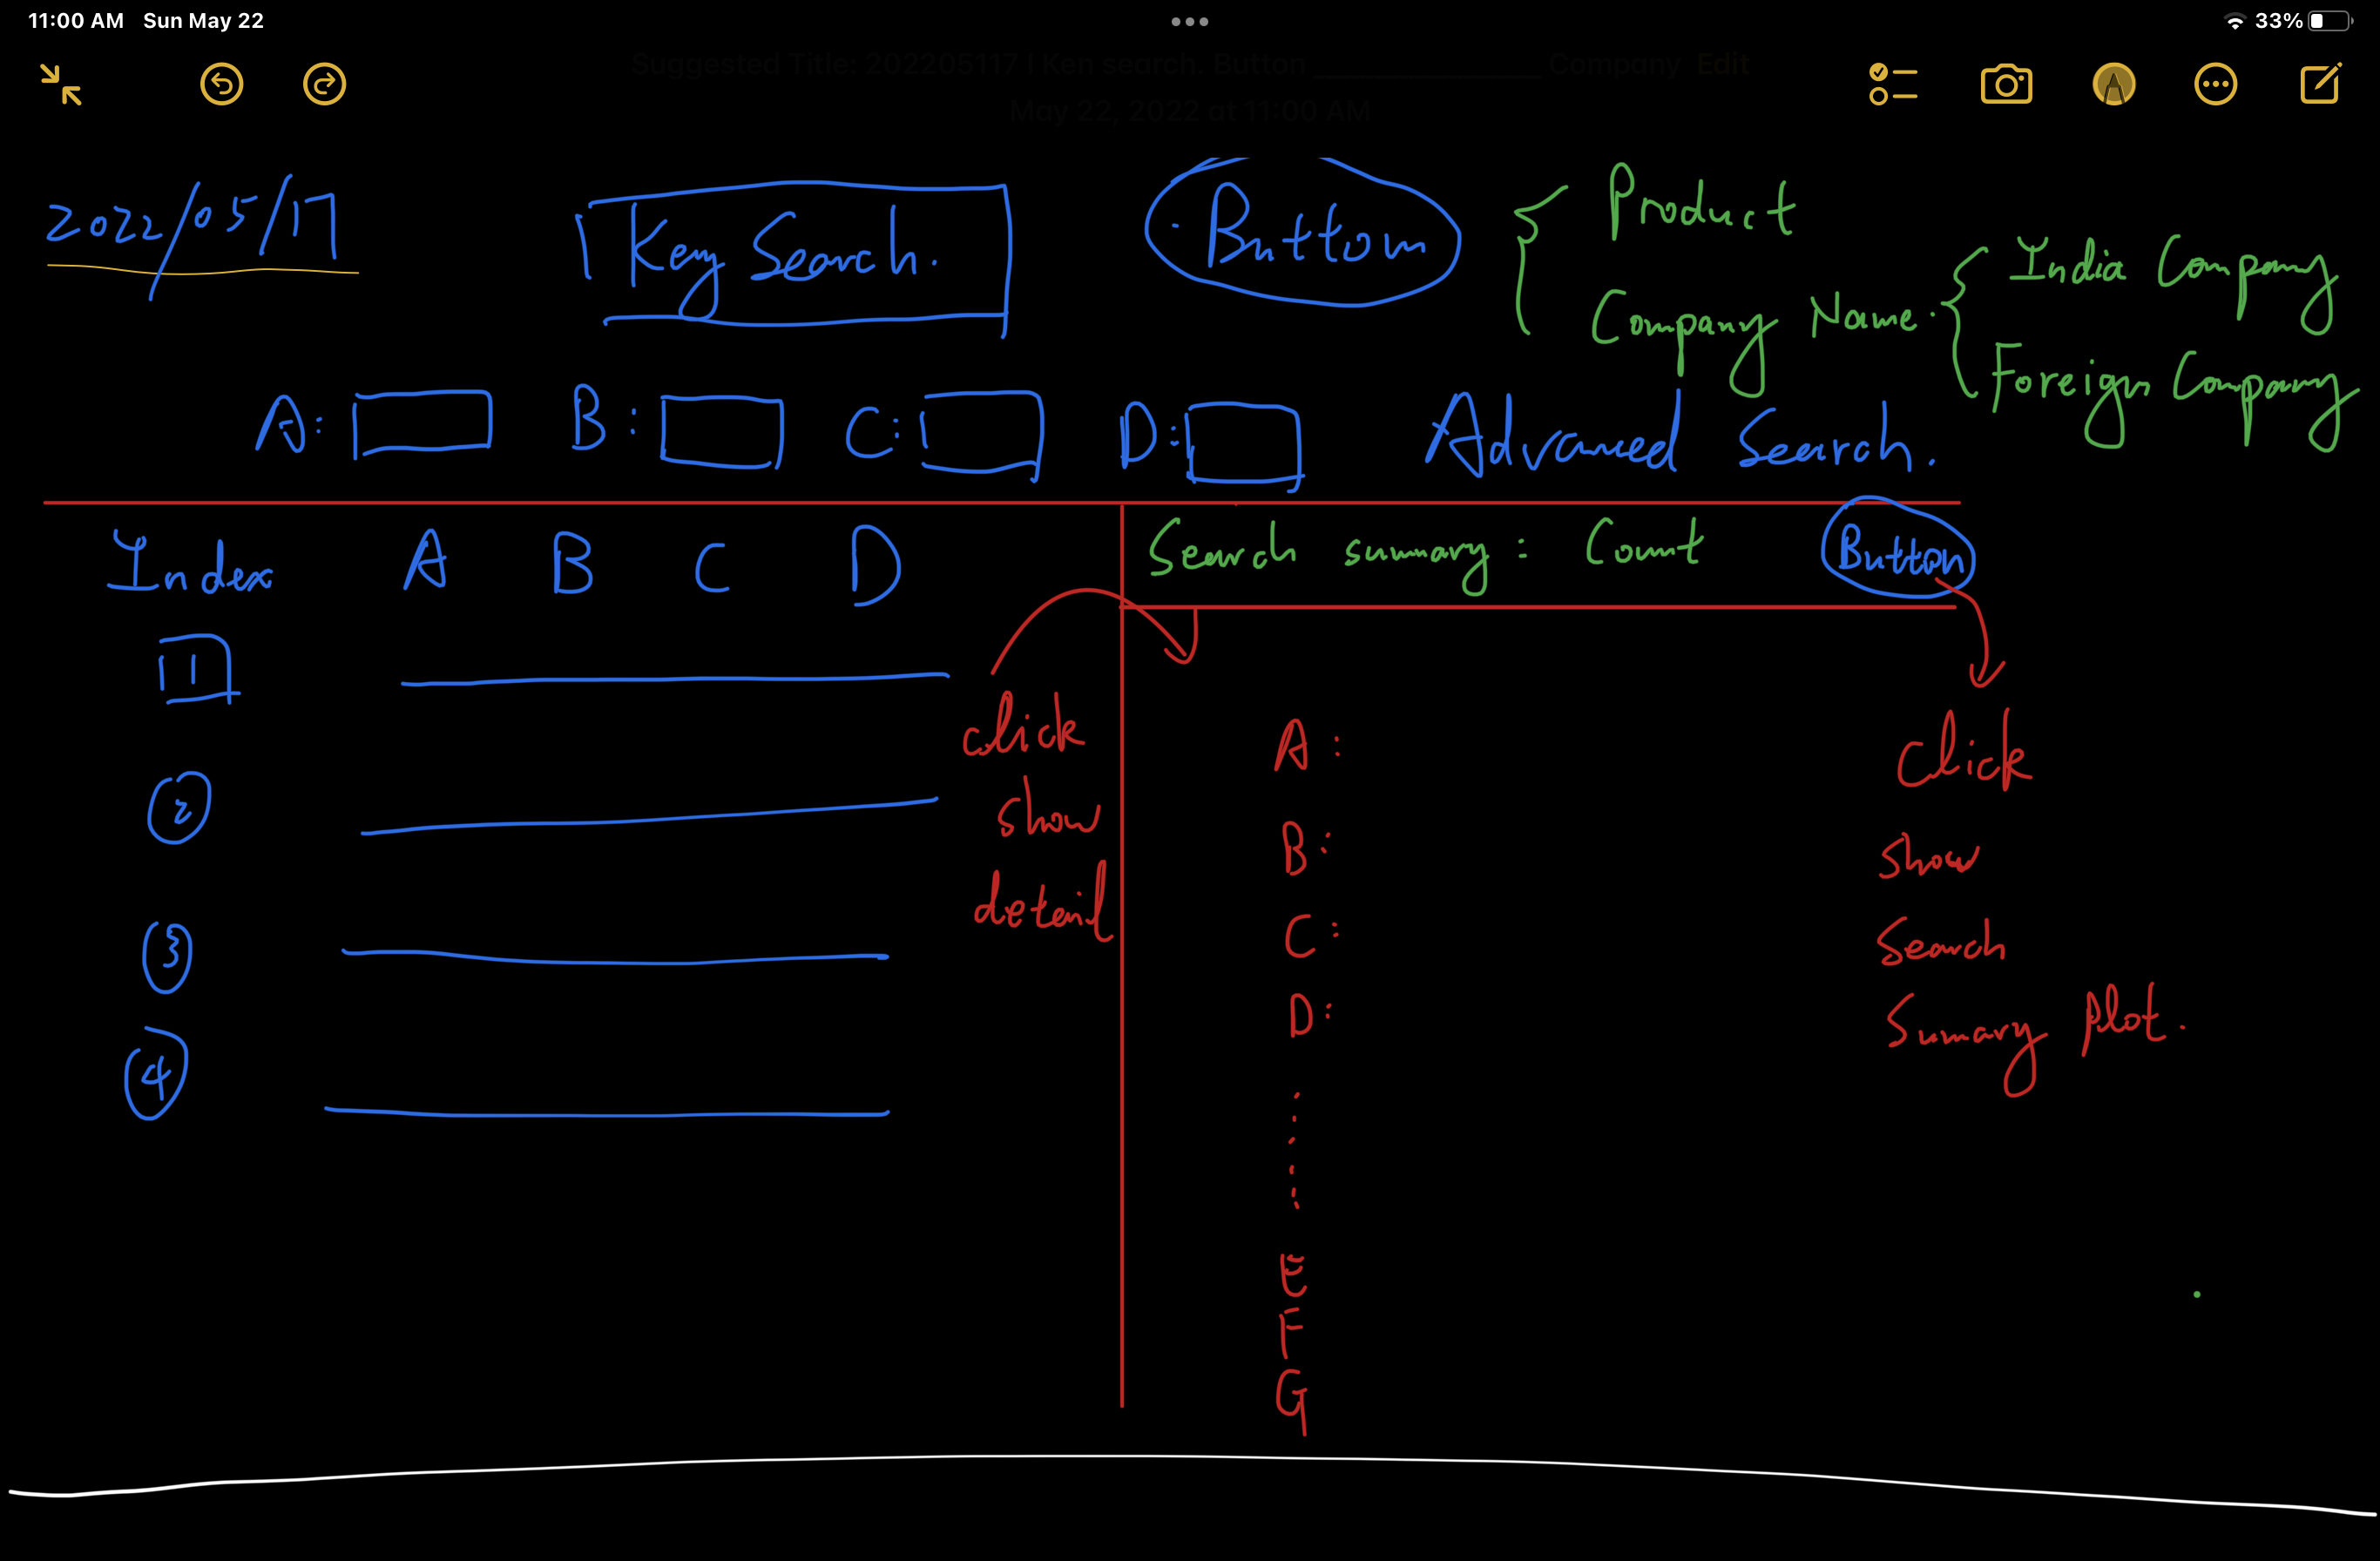 11:00 AM Sun May 22
33%
Suggested Title: 202205117 | Ken search. Button Company Edit
May 22, 2022 at 11:00 AM
2022/05/17
Key Search.
Buttom
Product
Company Name.
India Company
Foreign Company
A: B: C: D: Advanced Search.
Index A B C D
Search summary: Count Button
1
2
3
4
click
show
detail
A:
B:
C:
D:
E
F
G
Click
show
Search
Summary plot.